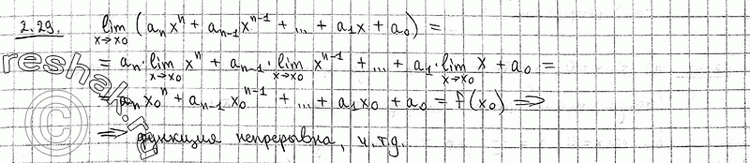 2.29. lim x→x0 (aₙxⁿ + aₙ₋₁xⁿ⁻¹ + ... + a₁x + a₀) =
= aₙ · lim x→x0 xⁿ + aₙ₋₁ · lim x→x0 xⁿ⁻¹ + ... + a₁ · lim x→x0 x + a₀ =
= aₙx₀ⁿ + aₙ₋₁x₀ⁿ⁻¹ + ... + a₁x₀ + a₀ = f(x₀) ⇒
⇒ функция непрерывна, ч.т.д.
reshak.ru